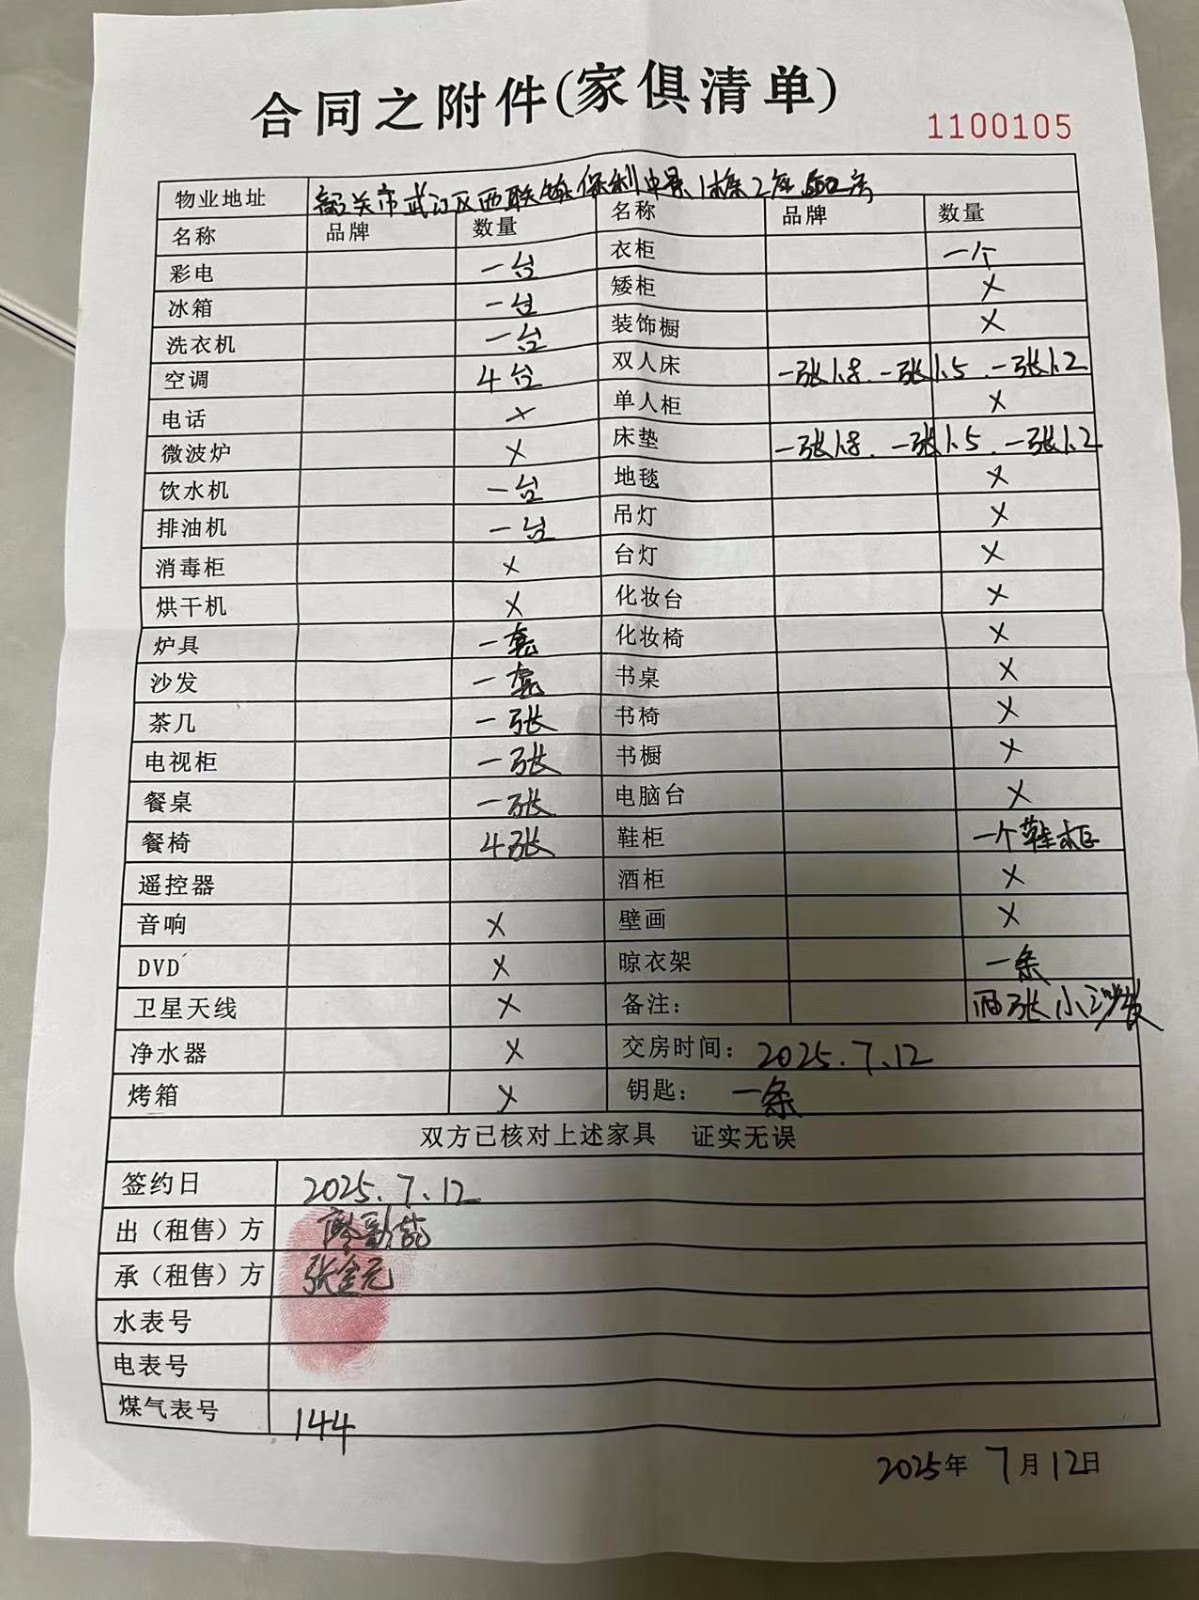 合同之附件(家俱清单)
1100105
物业地址 韶关市武江区西联镇保利中景1栋2座502房
名称 品牌 数量 名称 品牌 数量
彩电 一台 衣柜 一个
冰箱 一台 矮柜 ×
洗衣机 一台 装饰橱 ×
空调 4台 双人床 一张1.8、一张1.5、一张1.2
电话 × 单人柜 ×
微波炉 × 床垫 一张1.8、一张1.5、一张1.2
饮水机 一台 地毯 ×
排油机 一台 吊灯 ×
消毒柜 × 台灯 ×
烘干机 × 化妆台 ×
炉具 一套 化妆椅 ×
沙发 一套 书桌 ×
茶几 一张 书椅 ×
电视柜 一张 书橱 ×
餐桌 一张 电脑台 ×
餐椅 4张 鞋柜 一个鞋柜
遥控器 酒柜 ×
音响 × 壁画 ×
DVD × 晾衣架 一条
卫星天线 × 备注： 两张小沙发
净水器 × 交房时间：2025.7.12
烤箱 × 钥匙：一条
双方已核对上述家具 证实无误
签约日 2025.7.12
出（租售）方 廖
承（租售）方 张金元
水表号
电表号
煤气表号 144
2025年7月12日